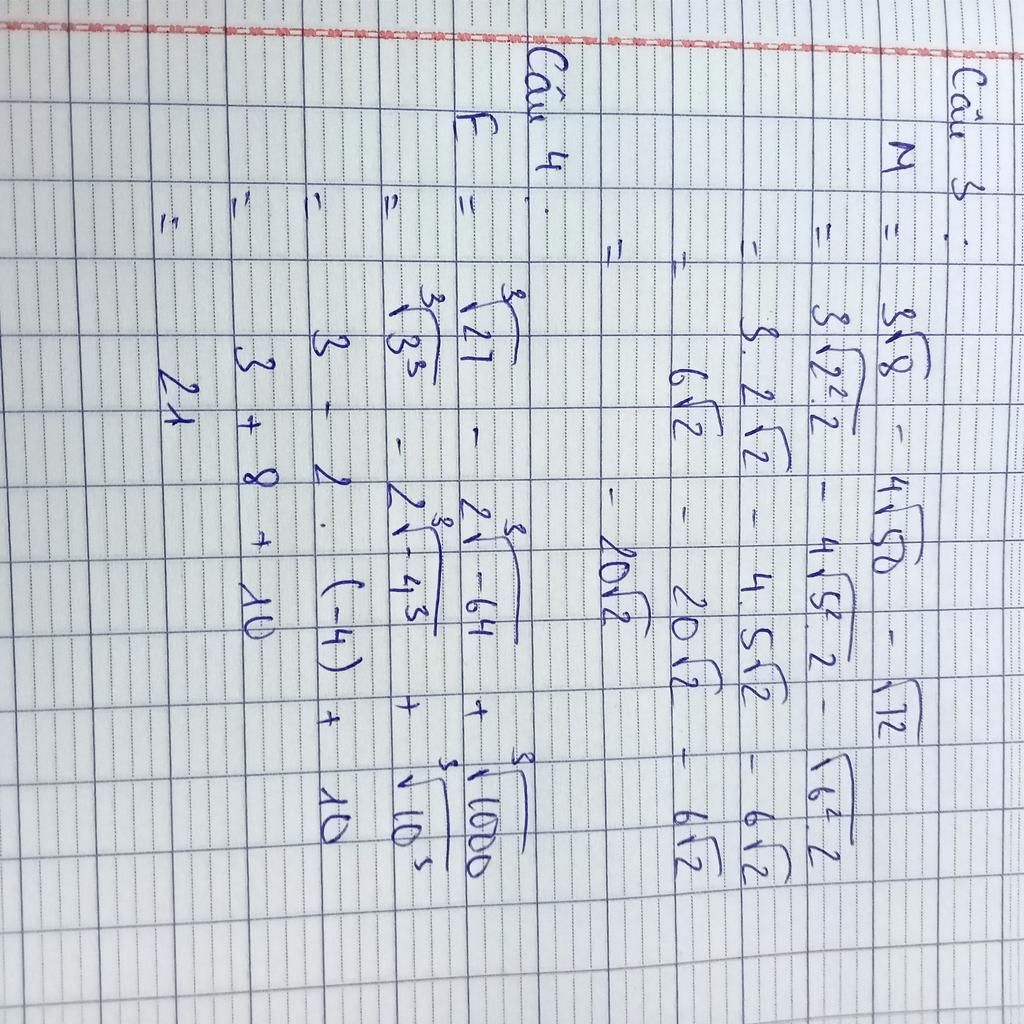 Câu 3 :
M = 3√8 - 4√50 - √72
= 3√2².2 - 4√5².2 - √6².2
= 3.2√2 - 4.5√2 - 6√2
= 6√2 - 20√2 - 6√2
= -20√2
Câu 4 :
F = ³√27 - 2³√-64 + ³√1000
= ³√3³ - 2³√-4³ + ³√10³
= 3 - 2 . (-4) + 10
= 3 + 8 + 10
= 21